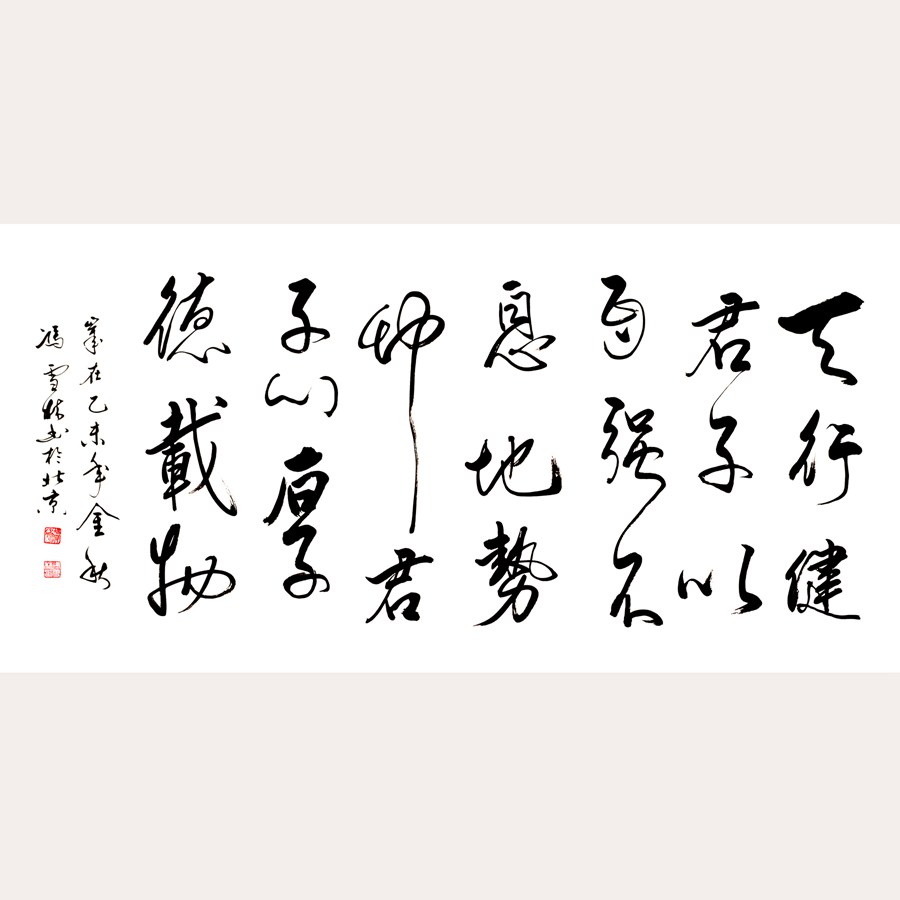 天行健
君子以
自强不
息地勢
坤君
子以厚
德載物
歲在乙未年金秋
馮雪林書於北京